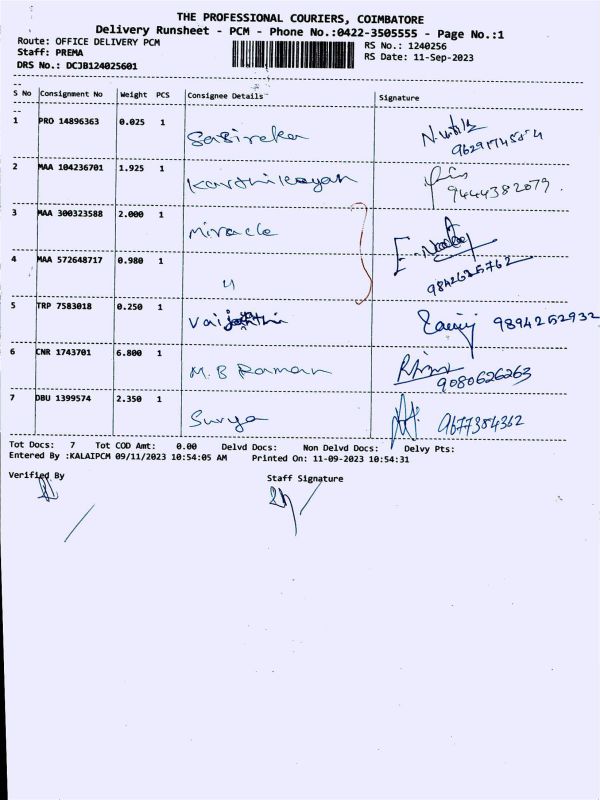 THE PROFESSIONAL COURIERS, COIMBATORE
Delivery Runsheet - PCM - Phone No.:0422-3505555 - Page No.:1
Route: OFFICE DELIVERY PCM
RS No.: 1240256
Staff: PREMA
RS Date: 11-Sep-2023
DRS No.: DCJB124025601
S No Consignment No Weight PCS Consignee Details Signature
1 PRO 14896363 0.025 1 Sasireka
2 MAA 104236701 1.925 1 Karthikeyan 9444382079
3 MAA 300323588 2.000 1 Miracle
4 MAA 572648717 0.980 1 " 9842625762
5 TRP 7583018 0.250 1 9894252932
6 CNR 1743701 6.800 1 M.B Raman 9080626263
7 DBU 1399574 2.350 1 Surya 9677384362
Tot Docs: 7 Tot COD Amt: 0.00 Delvd Docs: Non Delvd Docs: Delvy Pts:
Entered By :KALAIPCM 09/11/2023 10:54:05 AM Printed On: 11-09-2023 10:54:31
Verified By Staff Signature